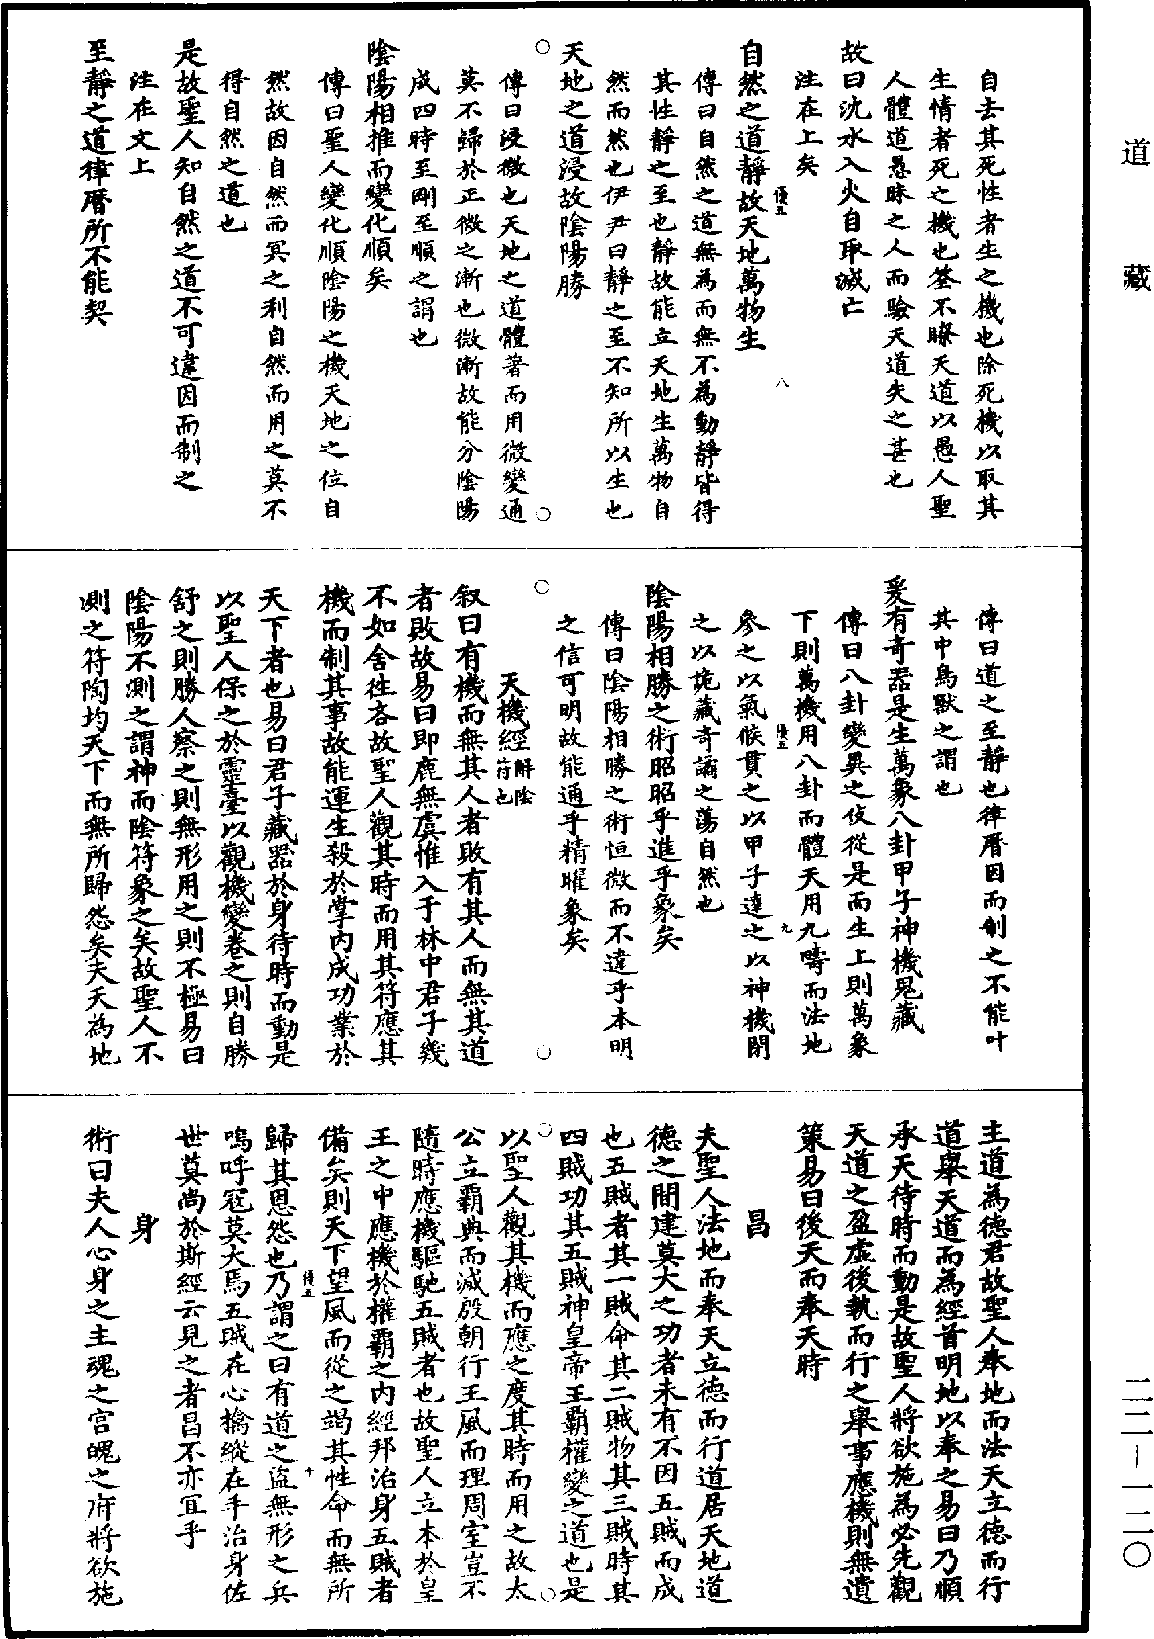 自去其死性者生之機也除死機以取其
生情者死之機也筌不瞭天道以愚人聖
人體道愚昧之人而驗天道失之甚也
故曰沈水入火自取滅亡
注在上矣
自然之道靜故天地萬物生
傳曰自然之道無為而無不為動靜皆得
其性靜之至也靜故能立天地生萬物自
然而然也伊尹曰靜之至不知所以生也
天地之道浸故陰陽勝
傳曰浸微也天地之道體著而用微變通
莫不歸於正微之漸也微漸故能分陰陽
成四時至剛至順之謂也
陰陽相推而變化順矣
傳曰聖人變化順陰陽之機天地之位自
然故因自然而冥之利自然而用之莫不
得自然之道也
是故聖人知自然之道不可違因而制之
注在文上
至靜之道律曆所不能契
傳曰道之至靜也律曆因而制之不能叶
其中鳥獸之謂也
爰有奇器是生萬象八卦甲子神機鬼藏
傳曰八卦變異之伎從是而生上則萬象
下則萬機用八卦而體天用九疇而法地
參之以氣候貫之以甲子達之以神機閉
之以詭藏奇譎之蕩自然也
陰陽相勝之術昭昭乎進乎象矣
傳曰陰陽相勝之術恒微而不違乎本明
之信可明故能通乎精曜象矣
天機經 解陰符也
叙曰有機而無其人者敗有其人而無其道
者敗故易曰即鹿無虞惟入于林中君子幾
不如舍往吝故聖人觀其時而用其符應其
機而制其事故能運生殺於掌内成功業於
天下者也易曰君子藏器於身待時而動是
以聖人保之於靈臺以觀機變卷之則自勝
舒之則勝人察之則無形用之則不極易曰
陰陽不測之謂神而陰符象之矣故聖人不
測之符陶均天下而無所歸怨矣夫天為地
主道為德君故聖人奉地而法天立德而行
道舉天道而為經首明地以奉之易曰乃順
承天待時而動是故聖人將欲施為必先觀
天道之盈虛後執而行之舉事應機則無遺
策易曰後天而奉天時
昌
夫聖人法地而奉天立德而行道居天地道
德之間建莫大之功者未有不因五賊而成
也五賊者其一賊命其二賊物其三賊時其
四賊功其五賊神皇帝王霸權變之道也是
以聖人觀其機而應之度其時而用之故太
公立霸典而滅殷朝行王風而理周室豈不
隨時應機驅馳五賊者也故聖人立本於皇
王之中應機於權霸之内經邦治身五賊者
備矣則天下望風而從之竭其性命而無所
歸其恩怨也乃謂之曰有道之盜無形之兵
嗚呼寇莫大焉五賊在心擒縱在手治身佐
世莫尚於斯經云見之者昌不亦宜乎
身
術曰夫人心身之主魂之宮魄之府將欲施
道 藏
二二－一二〇